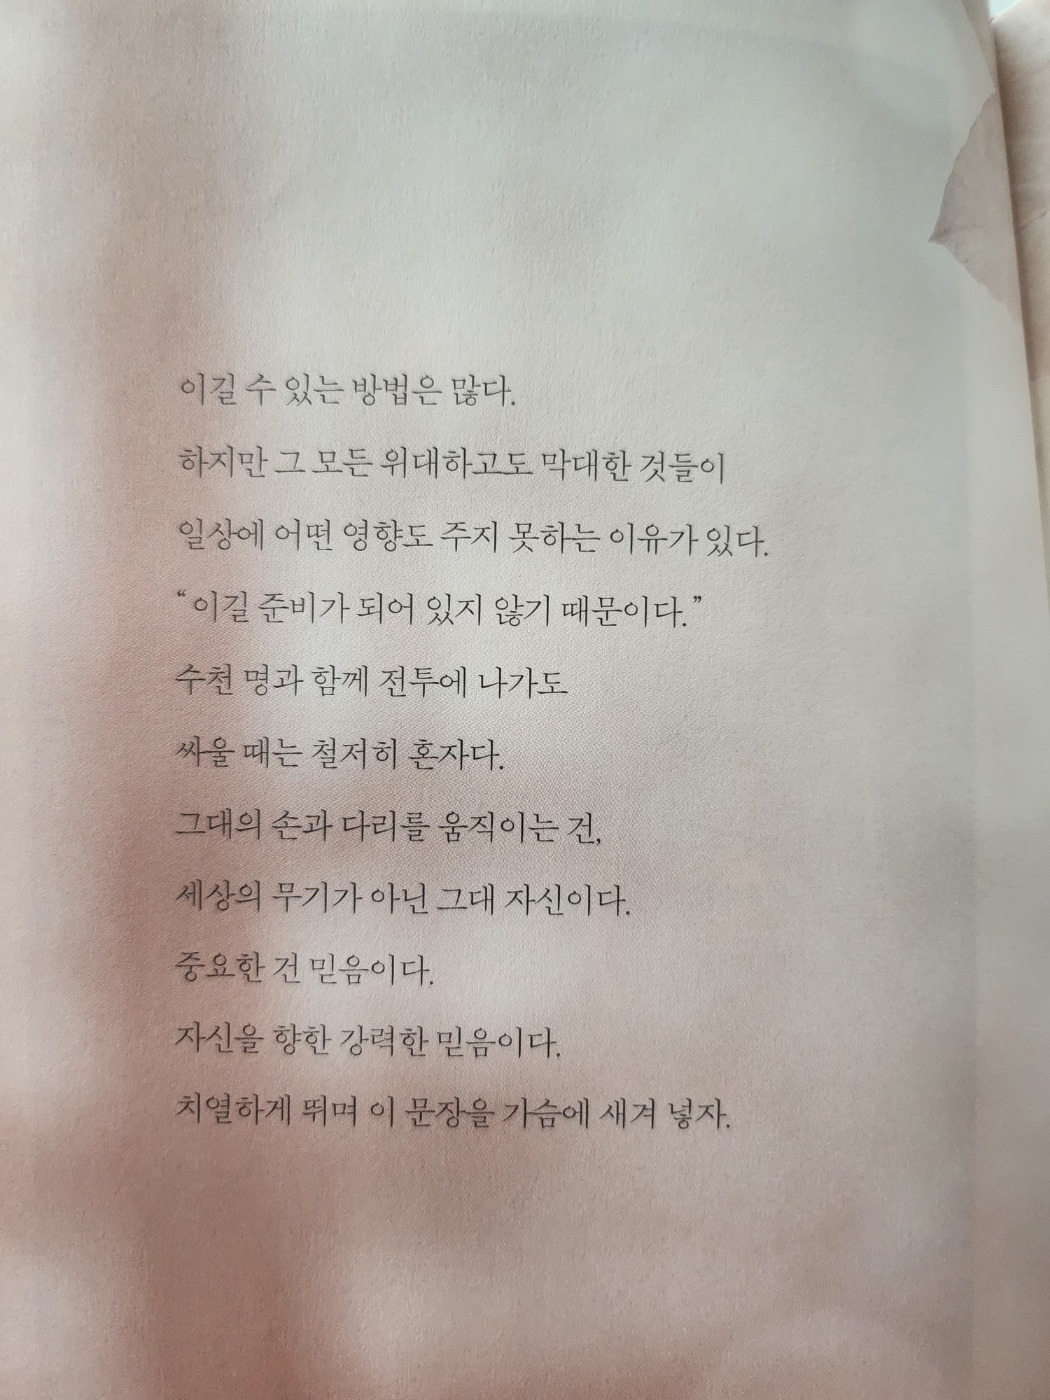 이길 수 있는 방법은 많다.
하지만 그 모든 위대하고도 막대한 것들이
일상에 어떤 영향도 주지 못하는 이유가 있다.
“이길 준비가 되어 있지 않기 때문이다.”
수천 명과 함께 전투에 나가도
싸울 때는 철저히 혼자다.
그대의 손과 다리를 움직이는 건,
세상의 무기가 아닌 그대 자신이다.
중요한 건 믿음이다.
자신을 향한 강력한 믿음이다.
치열하게 뛰며 이 문장을 가슴에 새겨 넣자.